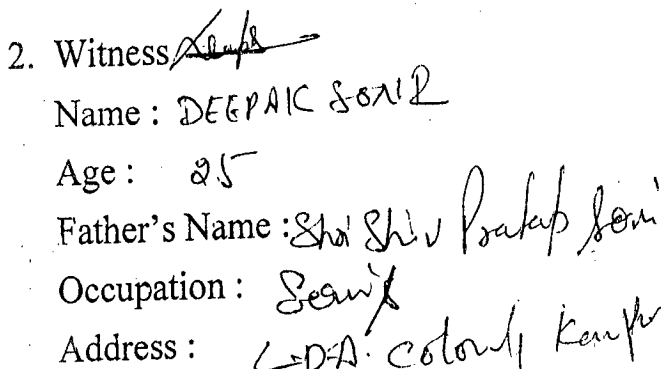 2. Witness
Name : DEEPAK SONI
Age : 25
Father's Name : Shri Shiv Pratap Soni
Occupation : Service
Address : L.D.A. Colony Kanpur